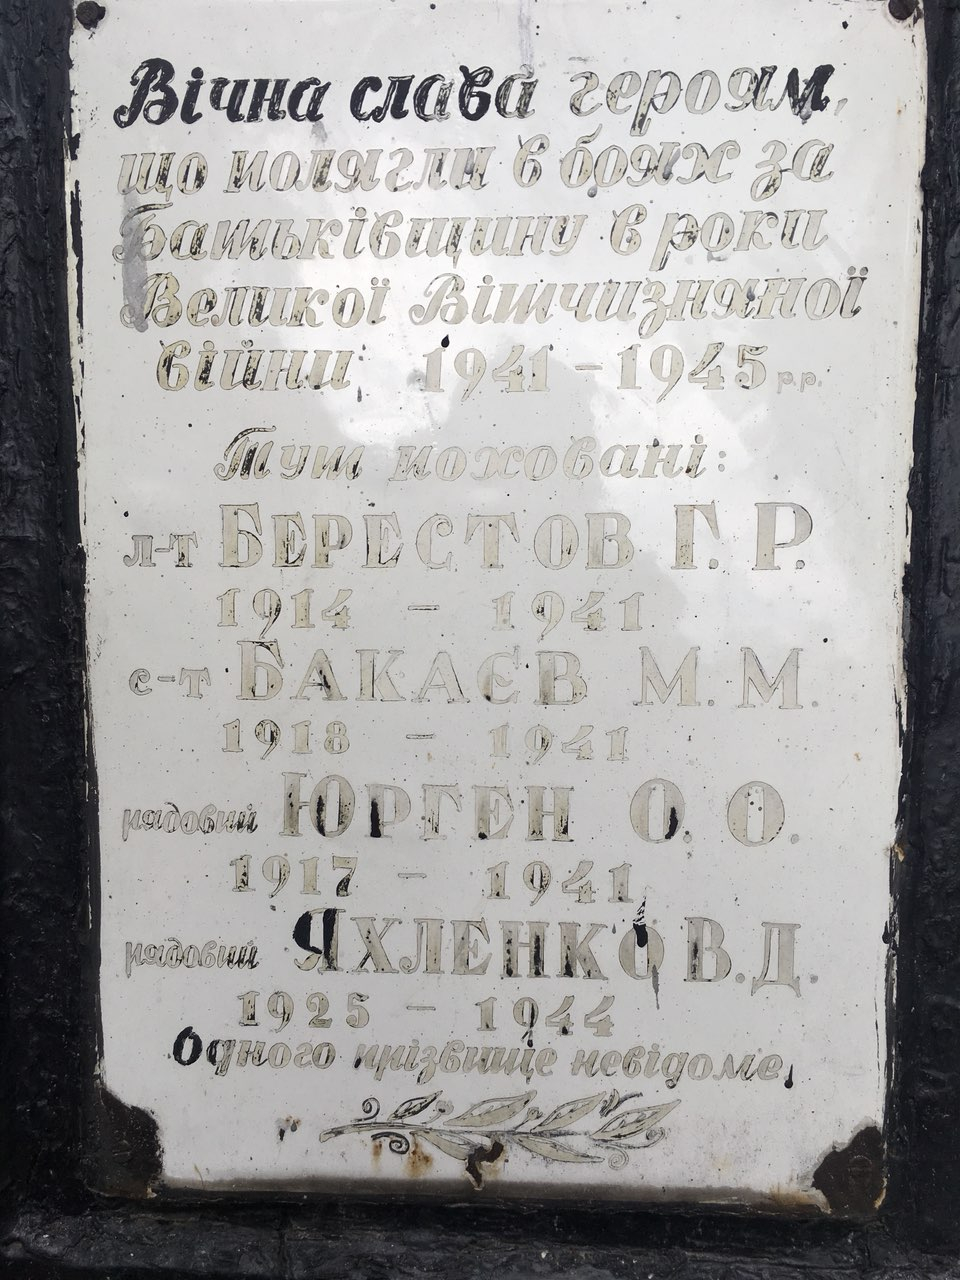 Вічна слава героям,
що полягли в боях за
Батьківщину в роки
Великої Вітчизняної
війни 1941 – 1945 р.р.
Тут поховані:
л-т БЕРЕСТОВ Г. Р.
1914 – 1941
с-т БАКАЄВ М. М.
1918 – 1941
рядовий ЮРГЕН О. О.
1917 – 1941
рядовий ЯХЛЕНКО В. Д.
1925 – 1944
Одного прізвище невідоме.